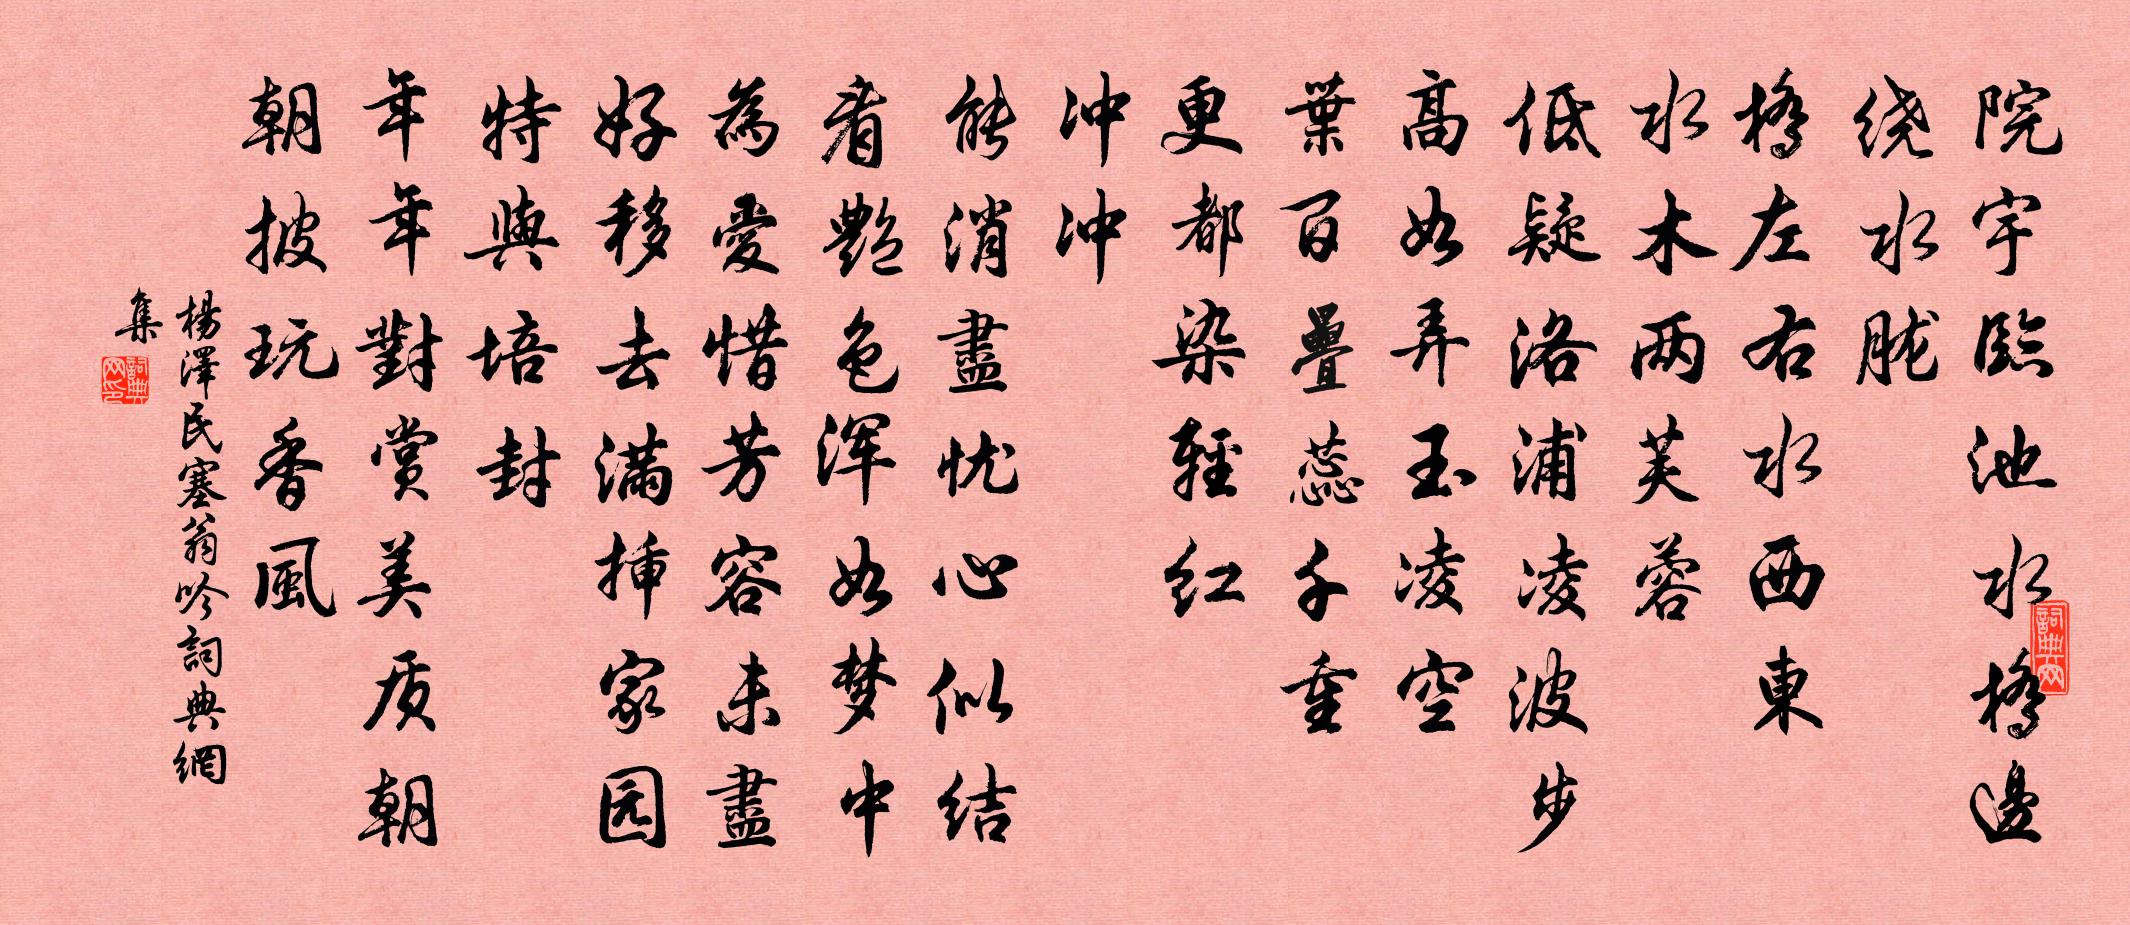 院宇臨池水橋邊
绕水胧
橋左右水西東
水木两芙蓉
低疑洛浦凌波步
高如弄玉凌空
葉百疊蕊千重
更都染輕红
冲冲
能消盡忧心似结
看艷色浑如梦中
為愛惜芳容未盡
好移去满挿家园
特與培封
年年對賞美质朝
朝披玩香風
楊澤民塞翁吟詞典網
集
詞典网
詞典网印